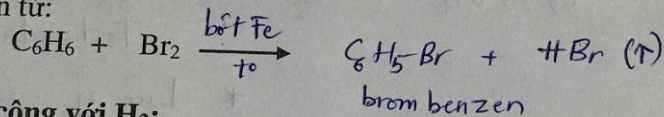 n tử:
C₆H₆ + Br₂ bột Fe t° → C₆H₅-Br + HBr (↑)
brom benzen
cộng với H₂: